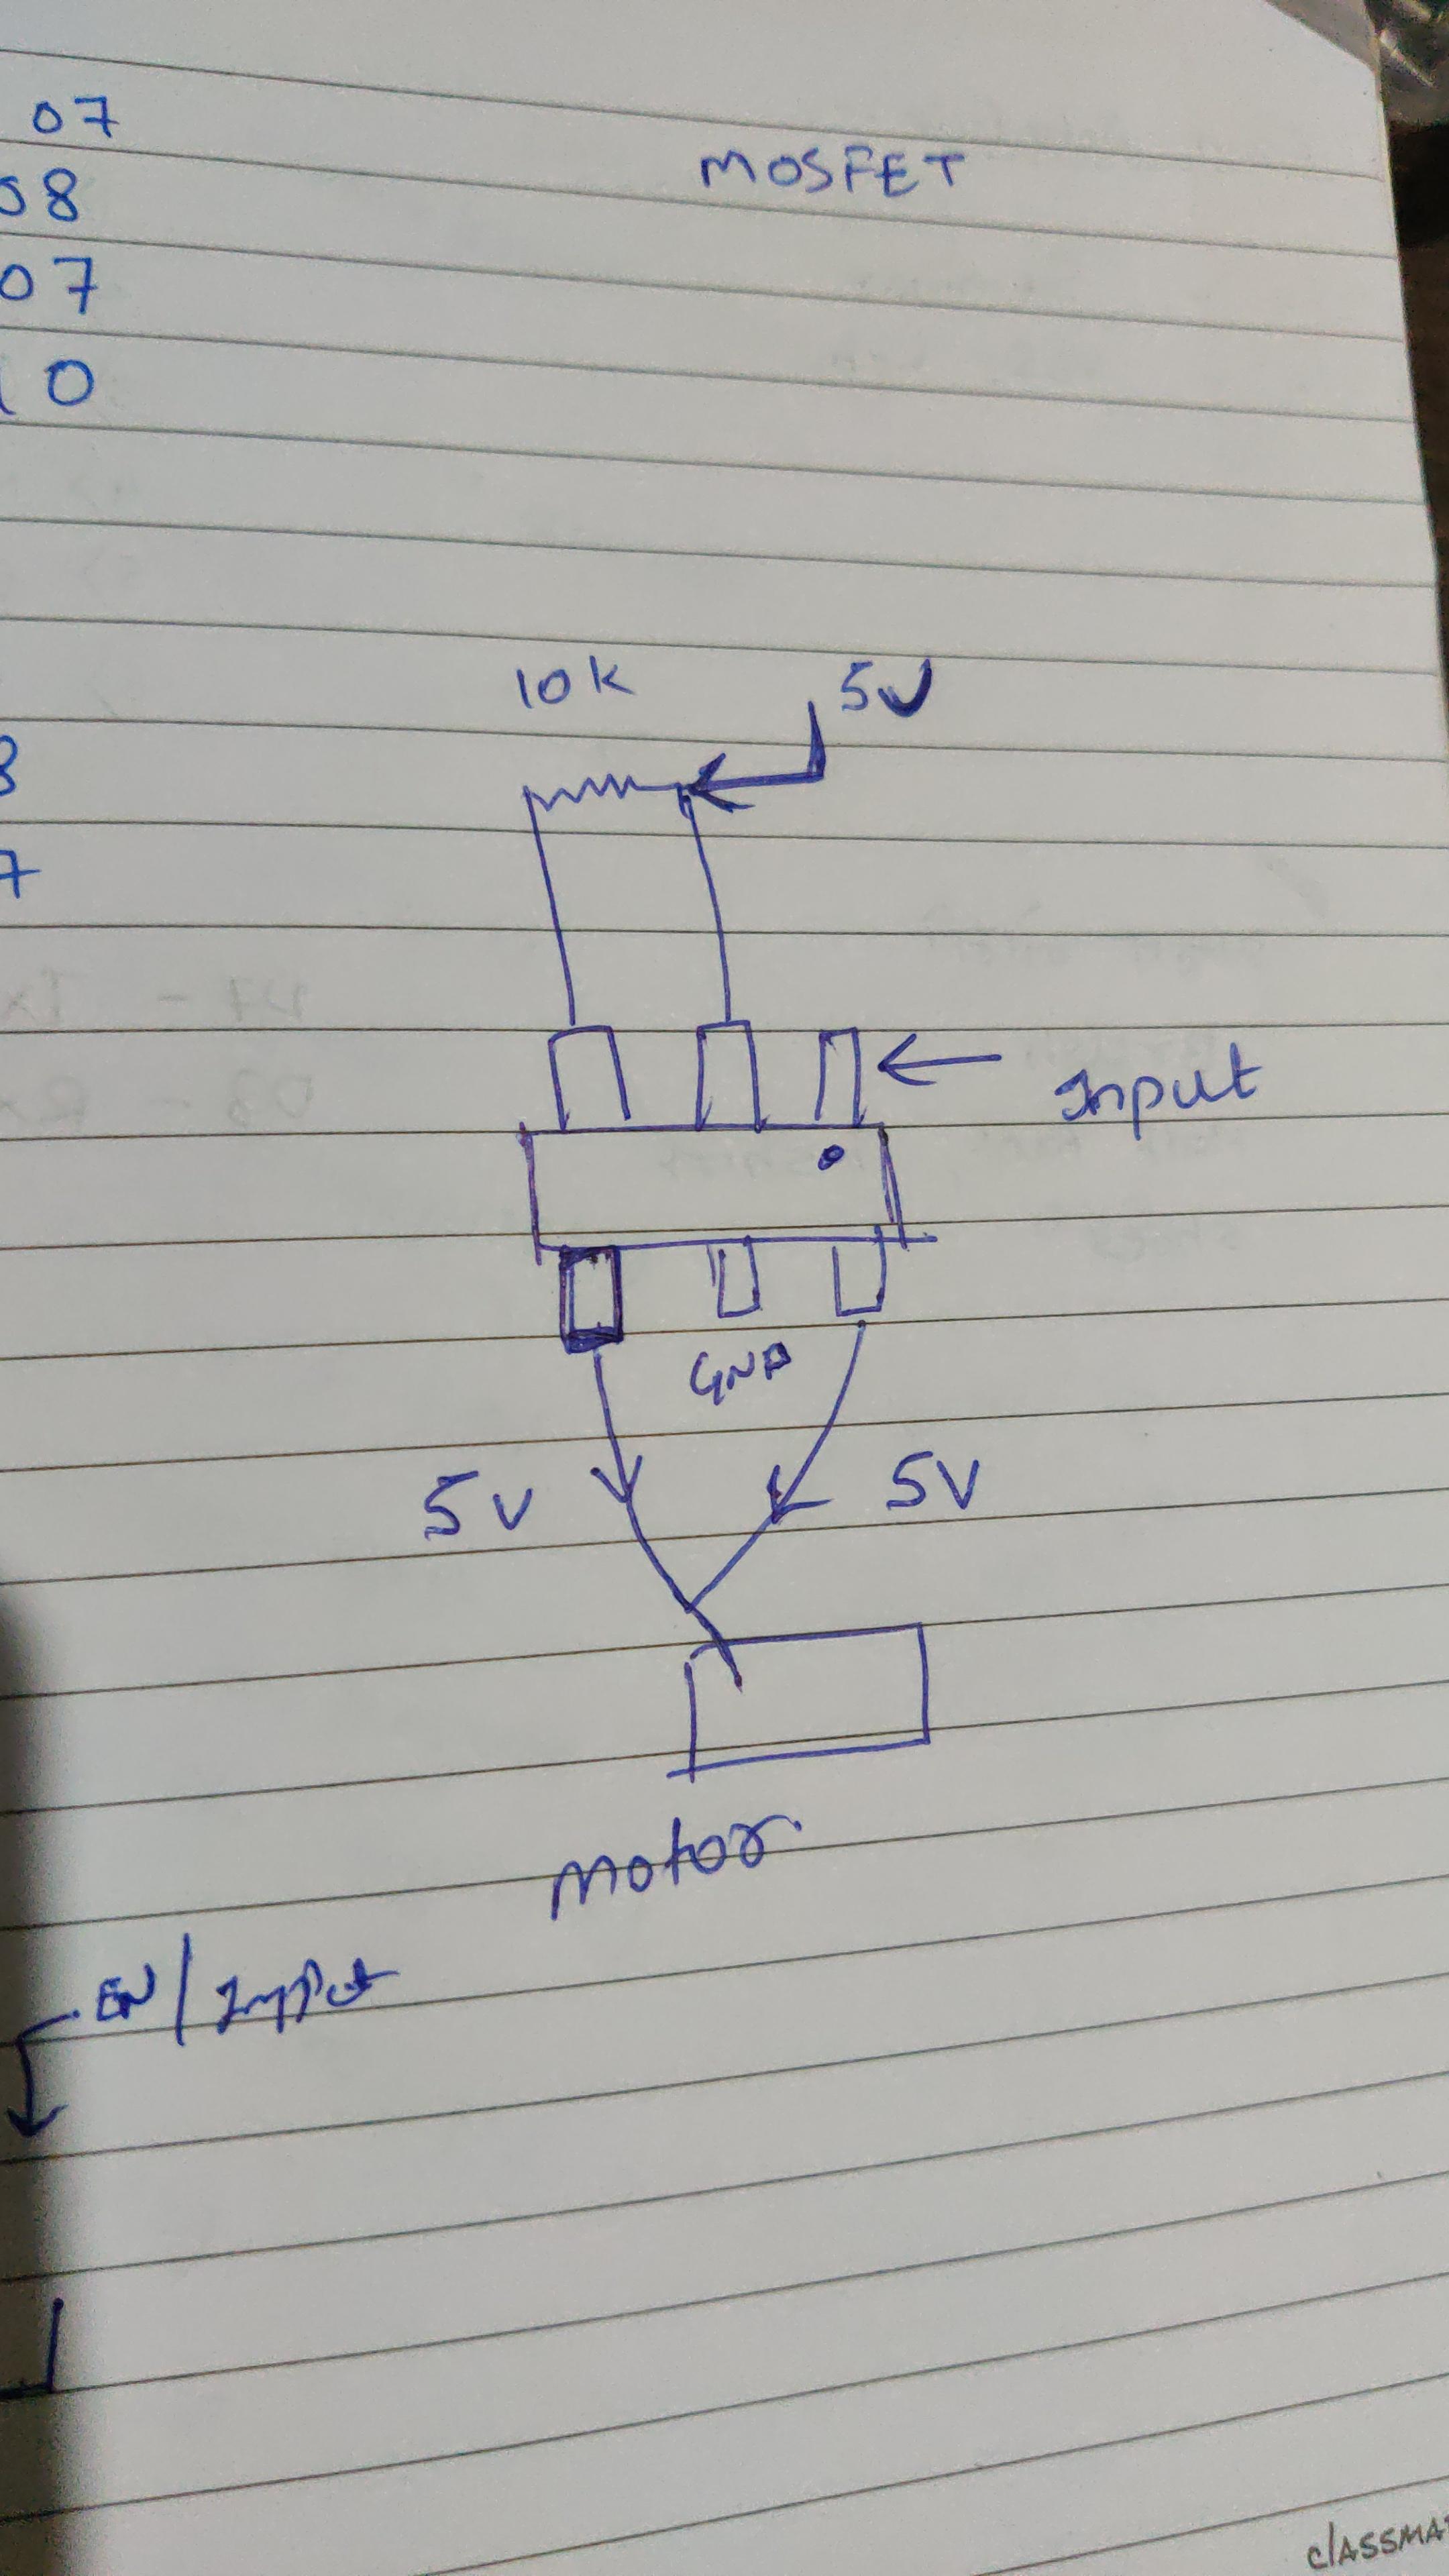 07
08
07
10
MOSFET
10K
5V
3
7
Input
GND
5V
5V
Motor
EN/Input
classma